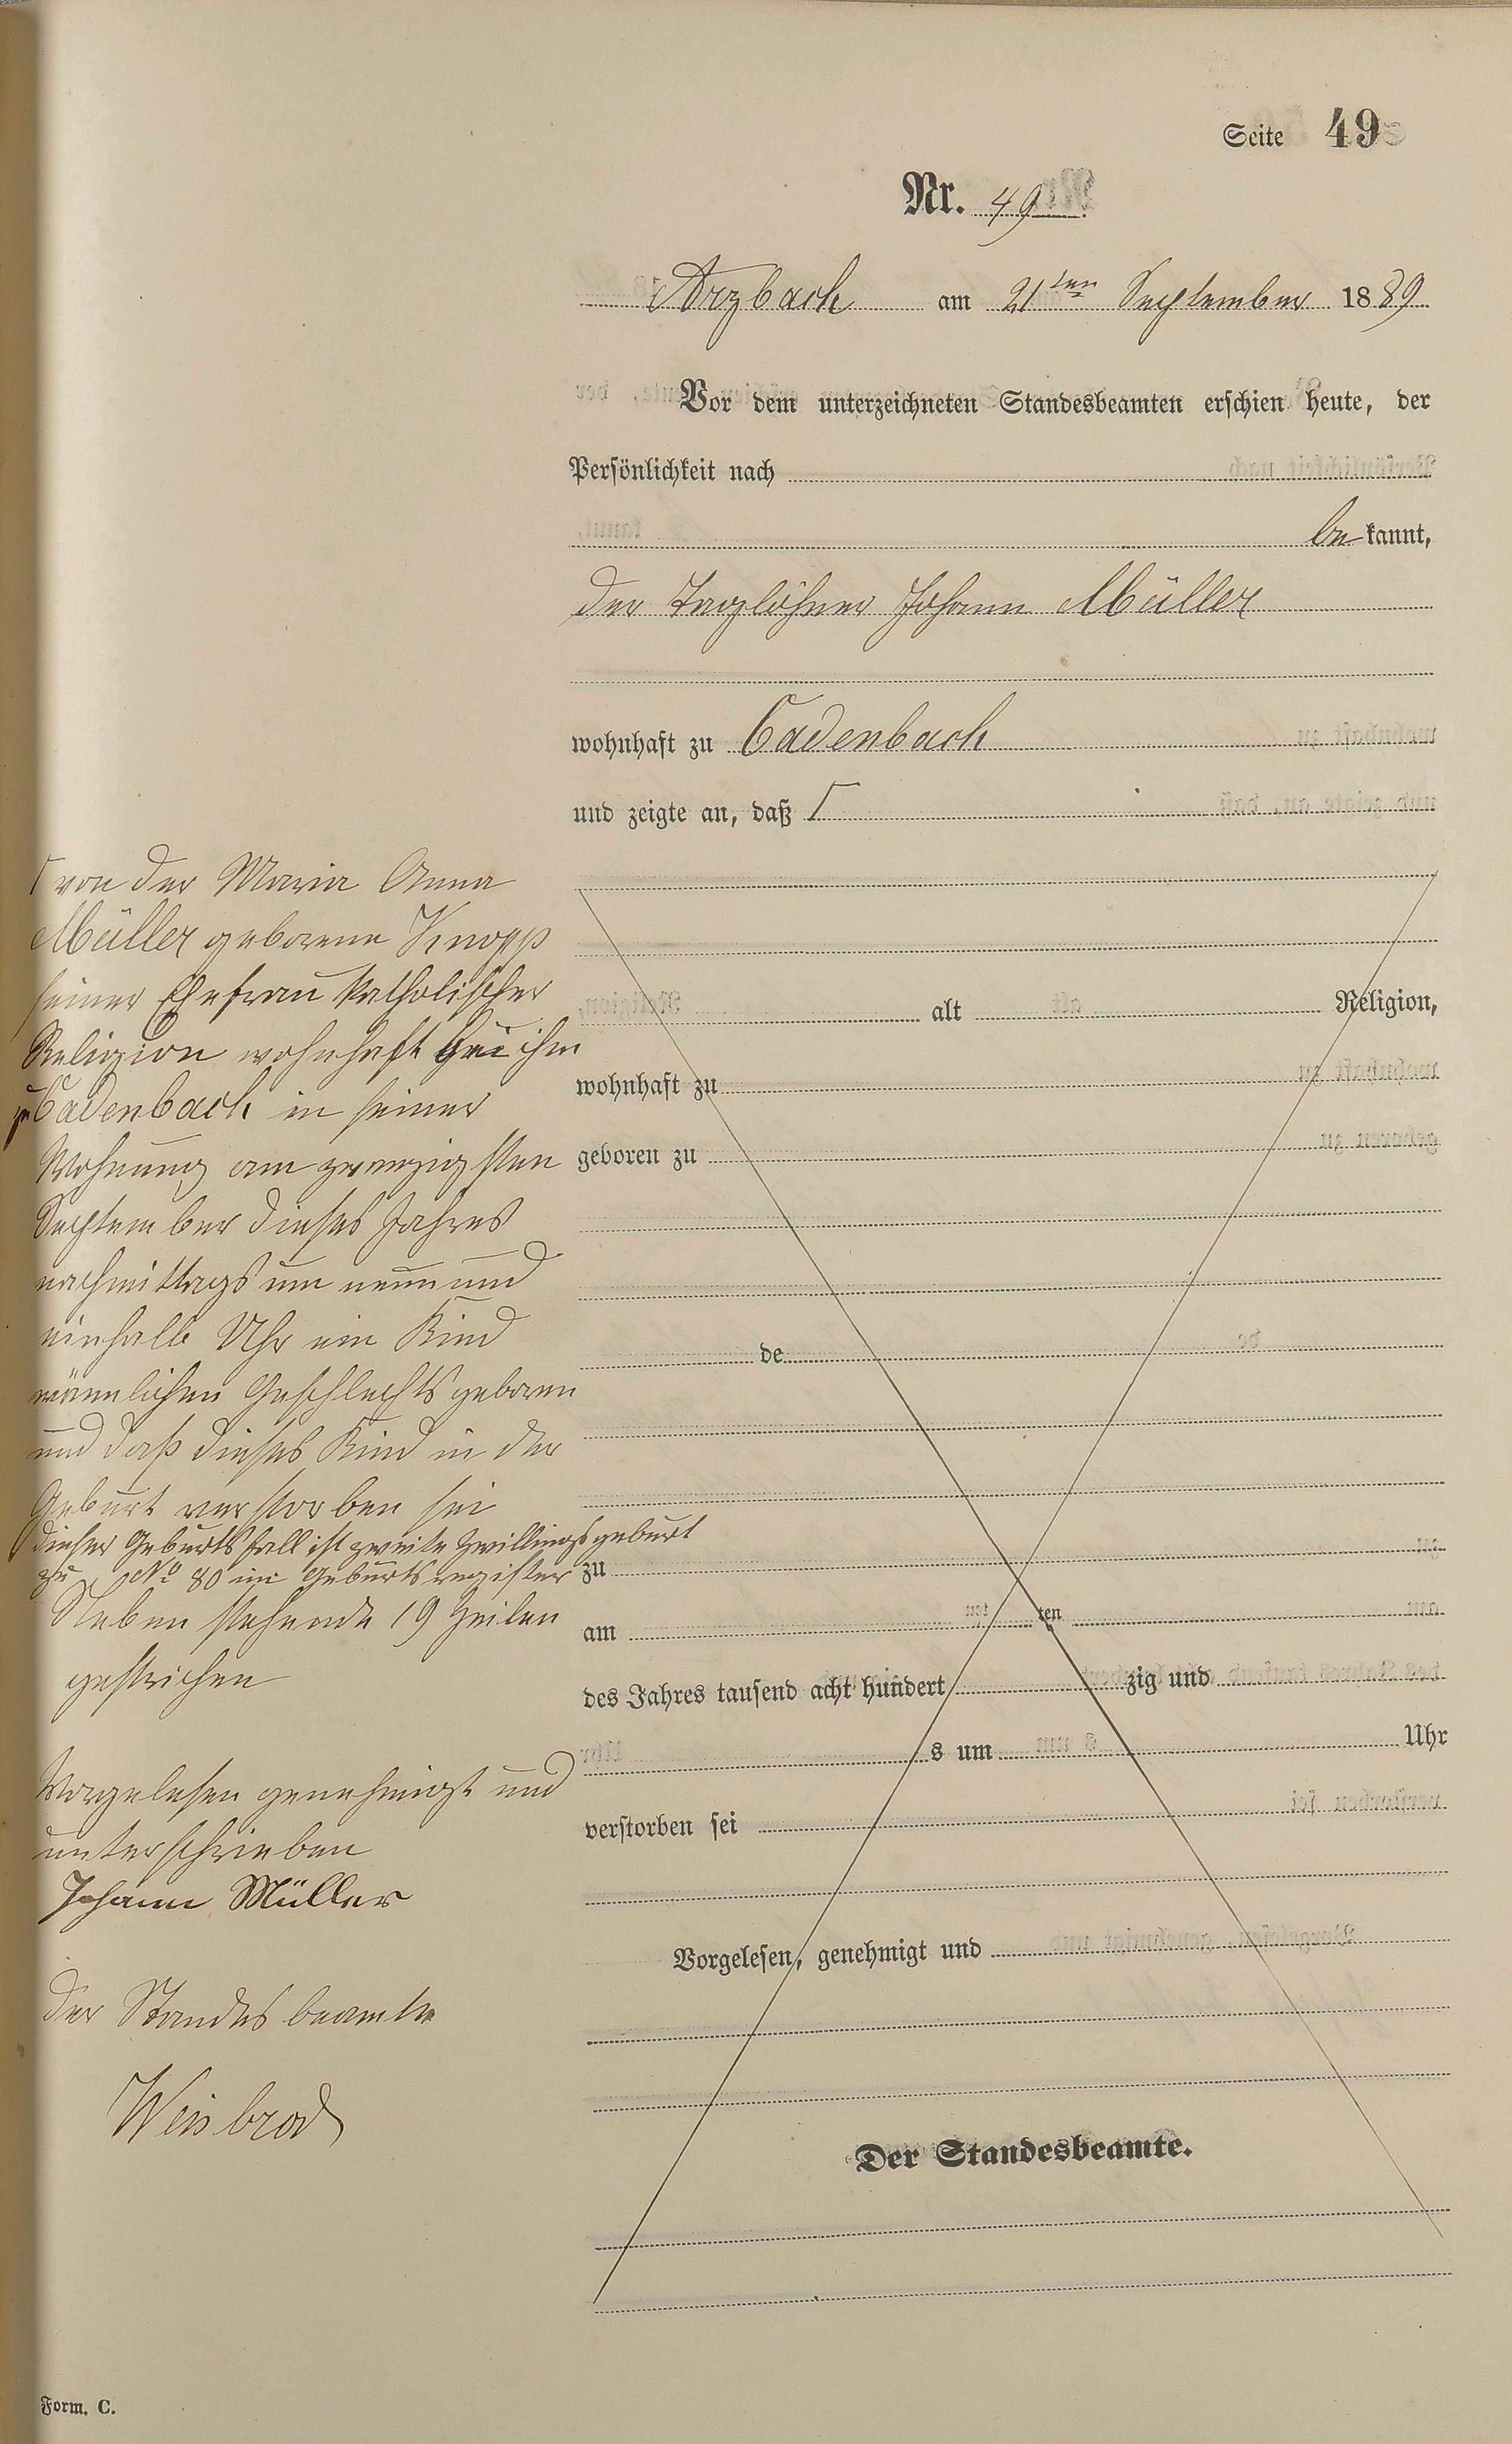 Seite 49
Nr. 49
Arzbach am 21ten September 1889
Vor dem unterzeichneten Standesbeamten erschien heute, der
Persönlichkeit nach
be kannt,
der Taglöhner Johann Müller
wohnhaft zu Cadenbach
und zeigte an, daß Γ
Γ von der Maria Anna
Müller geborene Knopp
seiner Ehefrau katholischer
Religion wohnhaft bei ihm
zu Cadenbach in seiner
Wohnung am zwanzigsten
September dieses Jahres
nachmittags um neun und
einhalb Uhr ein Kind
männlichen Geschlechts geboren
und daß dieses Kind in der
Geburt verstorben sei
dieser Geburtsfall ist zweite Zwillingsgeburt
zu No 80 im Geburtsregister
Neben stehende 19 Zeilen
gestrichen
Vorgelesen genehmigt und
unterschrieben
Johann Müller
der Standesbeamte
Weisbrod
alt Religion,
wohnhaft zu
geboren zu
de
zu
am ten
des Jahres tausend acht hundert zig und
s um Uhr
verstorben sei
Vorgelesen, genehmigt und
Der Standesbeamte.
Form. C.